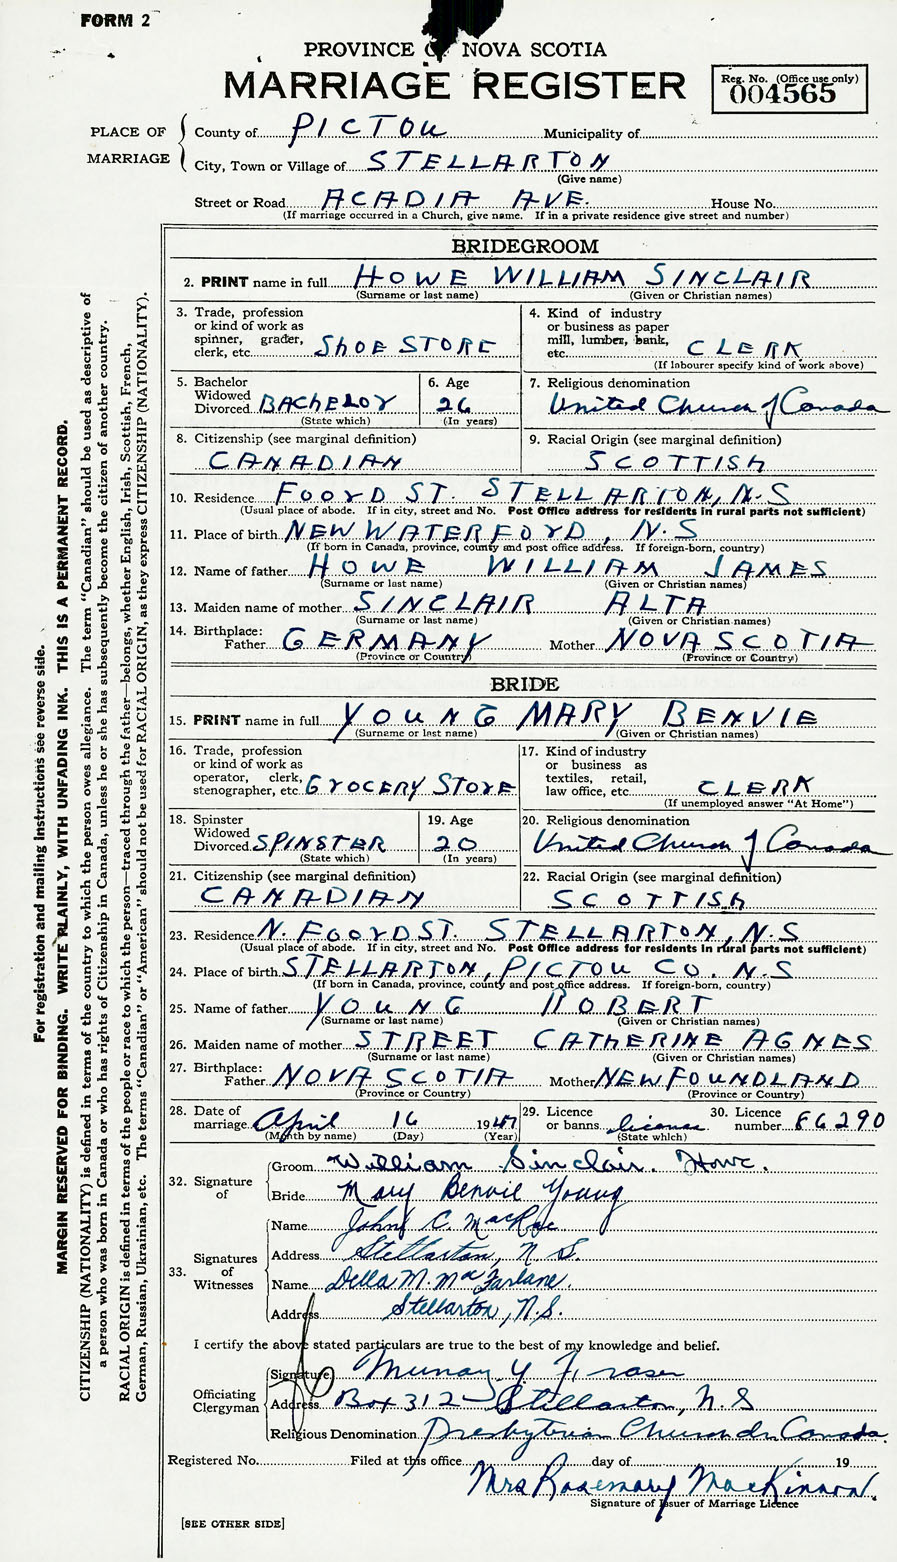 FORM 2
PROVINCE OF NOVA SCOTIA
MARRIAGE REGISTER
Reg. No. (Office use only)
004565
PLACE OF MARRIAGE
County of PICTOU Municipality of
City, Town or Village of STELLARTON
(Give name)
Street or Road ACADIA AVE. House No.
(If marriage occurred in a Church, give name. If in a private residence give street and number)
BRIDEGROOM
2. PRINT name in full HOWE WILLIAM SINCLAIR
(Surname or last name) (Given or Christian names)
3. Trade, profession
or kind of work as
spinner, grader,
clerk, etc. SHOE STORE
4. Kind of industry
or business as paper
mill, lumber, bank,
etc. CLERK
(If labourer specify kind of work above)
5. Bachelor
Widowed
Divorced BACHELOR
(State which)
6. Age
26
(In years)
7. Religious denomination
United Church of Canada
8. Citizenship (see marginal definition)
CANADIAN
9. Racial Origin (see marginal definition)
SCOTTISH
10. Residence FOORD ST. STELLARTON, N.S
(Usual place of abode. If in city, street and No. Post Office address for residents in rural parts not sufficient)
11. Place of birth NEW WATERFORD, N.S
(If born in Canada, province, county and post office address. If foreign-born, country)
12. Name of father HOWE WILLIAM JAMES
(Surname or last name) (Given or Christian names)
13. Maiden name of mother SINCLAIR ALTA
(Surname or last name) (Given or Christian names)
14. Birthplace:
Father GERMANY Mother NOVA SCOTIA
(Province or Country) (Province or Country)
BRIDE
15. PRINT name in full YOUNG MARY BENVIE
(Surname or last name) (Given or Christian names)
16. Trade, profession
or kind of work as
operator, clerk,
stenographer, etc. GROCERY STORE
17. Kind of industry
or business as
textiles, retail,
law office, etc. CLERK
(If unemployed answer "At Home")
18. Spinster
Widowed
Divorced SPINSTER
(State which)
19. Age
20
(In years)
20. Religious denomination
United Church of Canada
21. Citizenship (see marginal definition)
CANADIAN
22. Racial Origin (see marginal definition)
SCOTTISH
23. Residence N. FOORD ST. STELLARTON, N.S
(Usual place of abode. If in city, street and No. Post Office address for residents in rural parts not sufficient)
24. Place of birth STELLARTON, PICTOU CO. N.S
(If born in Canada, province, county and post office address. If foreign-born, country)
25. Name of father YOUNG ROBERT
(Surname or last name) (Given or Christian names)
26. Maiden name of mother STREET CATHERINE AGNES
(Surname or last name) (Given or Christian names)
27. Birthplace:
Father NOVA SCOTIA Mother NEWFOUNDLAND
(Province or Country) (Province or Country)
28. Date of
marriage April 16 1947
(Month by name) (Day) (Year)
29. Licence
or banns license
(State which)
30. Licence
number 86290
32. Signature of
Groom William Sinclair Howe.
Bride Mary Benvie Young
33. Signatures of Witnesses
Name John C. MacRae
Address Stellarton, N.S.
Name Della M. MacFarlane.
Address Stellarton, N.S.
I certify the above stated particulars are true to the best of my knowledge and belief.
Officiating Clergyman
Signature Murray Y. Fraser
Address Box 312 Stellarton, N.S
Religious Denomination Presbyterian Church in Canada.
Registered No. Filed at this office day of 19
Mrs Rosemary MacKinnon.
Signature of Issuer of Marriage Licence
[SEE OTHER SIDE]
For registration and mailing instructions see reverse side.
MARGIN RESERVED FOR BINDING. WRITE PLAINLY, WITH UNFADING INK. THIS IS A PERMANENT RECORD.
CITIZENSHIP (NATIONALITY) is defined in terms of the country to which the person owes allegiance. The term "Canadian" should be used as descriptive of
a person who was born in Canada or who has rights of Citizenship in Canada, unless he or she has subsequently become the citizen of another country.
RACIAL ORIGIN is defined in terms of the people or race to which the person—traced through the father—belongs, whether English, Irish, Scottish, French,
German, Russian, Ukrainian, etc. The terms "Canadian" or "American" should not be used for RACIAL ORIGIN, as they express CITIZENSHIP (NATIONALITY).